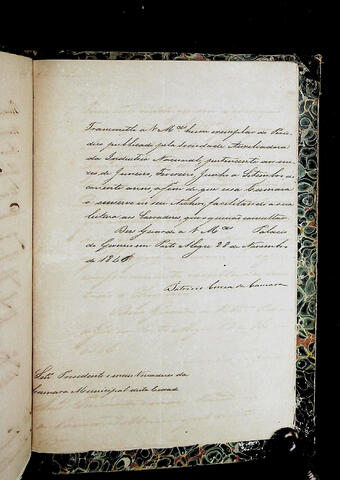 Transmitto a V. M.ces hum exemplar do Perio-
dico publicado pela Sociedade Auxiliadora
da Industria Nacional, pertencente ao mez
de Janeiro, Fevereiro, Junho a Setembro, do
corrente anno, afim de que essa Camara
o conserve no seu Archivo, facilitando a sua
leitura aos Lavradores que o queirão consultar.
Deos Guarde a V. M.ces Palacio
do Governo em Porto Alegre 28 de Novembro
de 1846.
Patricio Correa da Camara
Snr.s Presidente e mais Vereadores da
Camara Municipal desta Cidade